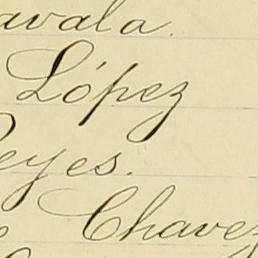 avala.
López
Reyes.
Chavez